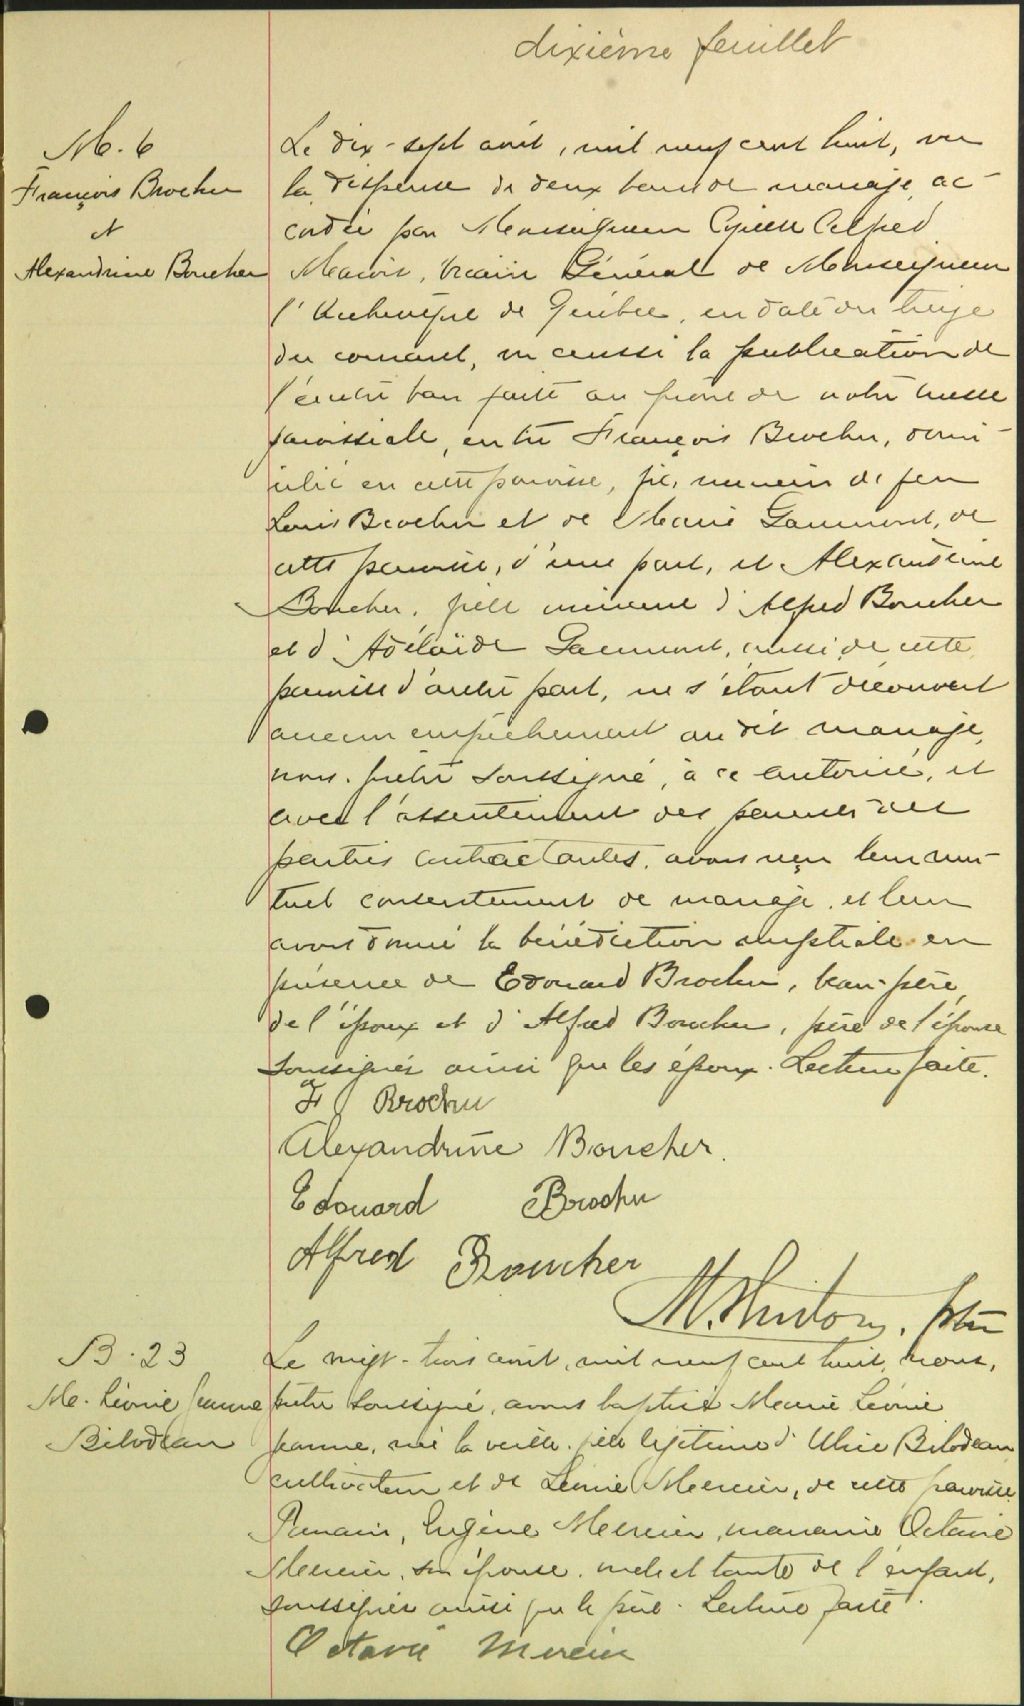 dixième feuillet
M. 6
François Brochu
et
Alexandrine Boucher
Le dix-sept août, mil neuf cent huit, vu
la dispense de deux bans de mariage ac-
cordée par Monseigneur Cyrille Alfred
Marois, Vicaire Général de Monseigneur
l'Archevêque de Québec, en date du treize
du courant, vu aussi la publication de
l'autre ban faite au prône de notre messe
paroissiale, entre François Brochu, domi-
cilié en cette paroisse, fils mineur de feu
Louis Brochu et de Marie Gaumont, de
cette paroisse, d'une part, et Alexandrine
Boucher, fille mineure d'Alfred Boucher
et d'Adélaïde Gaumont, aussi de cette
paroisse d'autre part, ne s'étant découvert
aucun empêchement au dit mariage,
nous, prêtre soussigné, à ce autorisé, et
avec l'assentiment des parents des
parties contractantes, avons reçu leur mu-
tuel consentement de mariage, et leur
avons donné la bénédiction nuptiale en
présence de Edouard Brochu, beau-père
de l'époux et d'Alfred Boucher, père de l'épouse
soussignés ainsi que les époux. Lecture faite.
F Brochu
Alexandrine Boucher.
Edouard Brochu
Alfred Boucher
M. Hudon, ptre
B. 23
M. Léonie Jeanne
Bilodeau
Le vingt-trois août, mil neuf cent huit, nous,
prêtre soussigné, avons baptisé Marie Léonie
Jeanne, née la veille, fille légitime d' Bilodeau
cultivateur et de Léonie Mercier, de cette paroisse.
Parrain, Eugène Mercier, marraine Octavie
Mercier, son épouse, oncle et tante de l'enfant,
soussignés ainsi que le père. Lecture faite.
Octavie Mercier